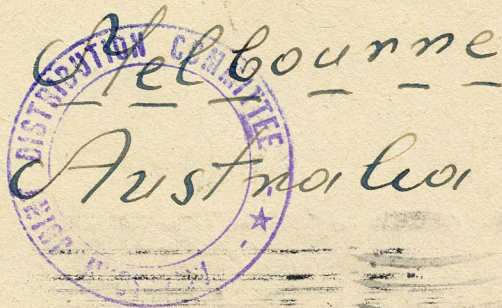 Melbourne
Australia
DISTRIBUTION COMMITTEE
JOINT